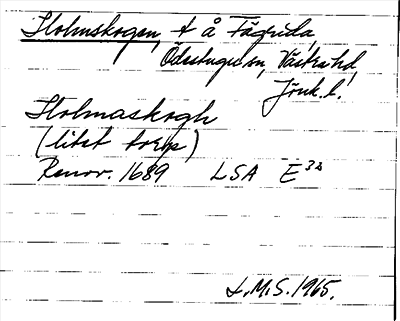 Holmskogen, t å Fägrida,
Ödestugu sn, Västra hd,
Jönk. l.
Holmaskogh
(litet torp)
Renov. 1689 LSA E 32
L.M.S. 1965.